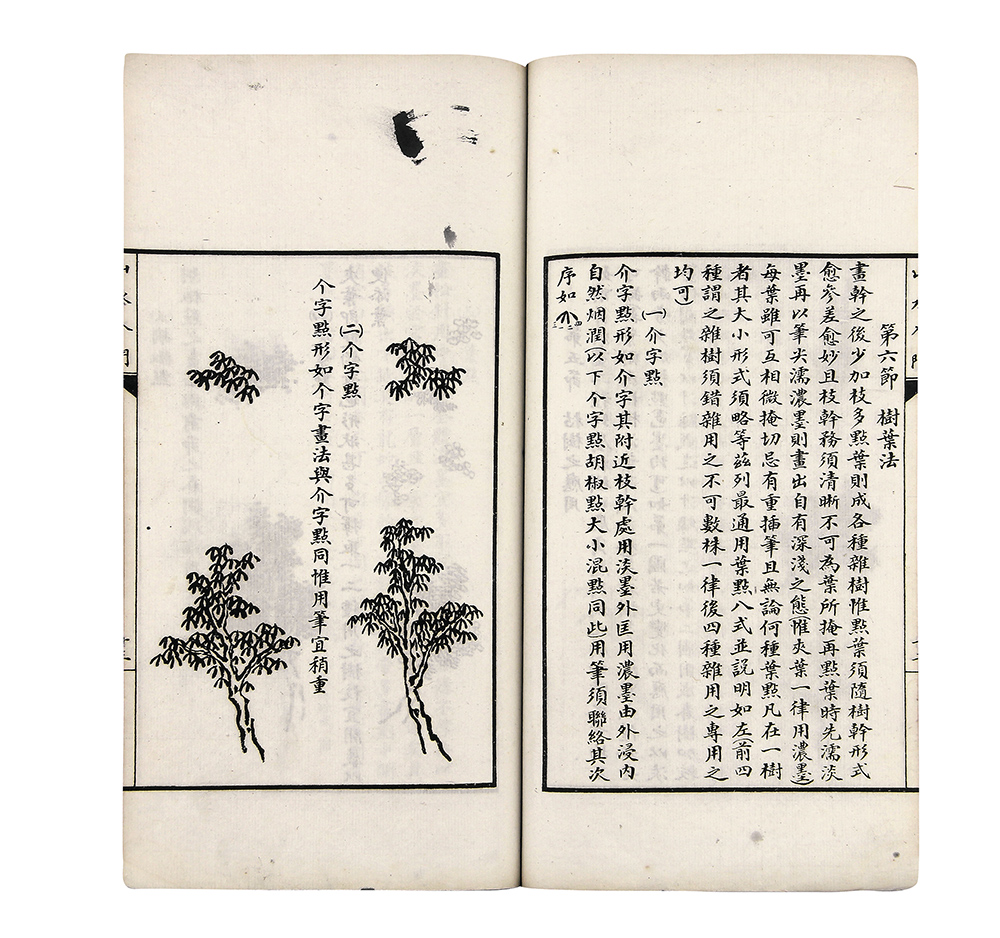 第六節 樹葉法
畫幹之後少加枝多點葉則成各種雜樹惟點葉須隨樹幹形式
愈參差愈妙且枝幹務須清晰不可為葉所掩再點葉時先濡淡
墨再以筆尖濡濃墨則畫出自有深淺之態(惟夾葉一律用濃墨)
每葉雖可互相微掩切忌有重插筆且無論何種葉點凡在一樹
者其大小形式須略等茲列最通用葉點八式並說明如左(前四
種謂之雜樹須錯雜用之不可數株一律後四種雜用之專用之
均可) (一)介字點
介字點形如介字其附近枝幹處用淡墨外匡用濃墨由外浸內
自然烟潤(以下个字點胡椒點大小混點同此)用筆須聯絡其次
序如
(二)个字點
个字點形如个字畫法與介字點同惟用筆宜稍重